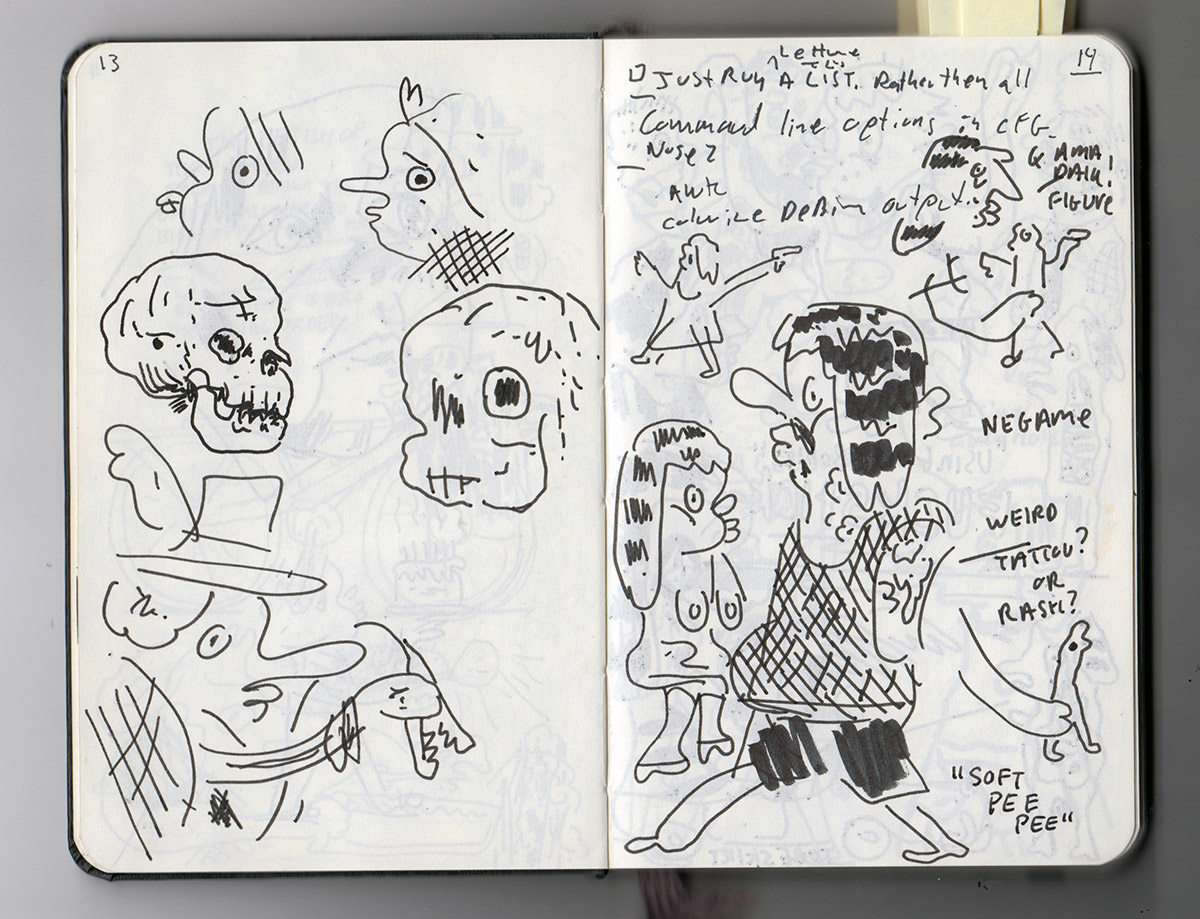 13
14
Lettuce
JUST RUN A LIST. Rather then all
Command line options in CFG
Nose 2
AWK
colorize Debian output
& AMA
DAILY
FIGURE
NEGAME
WEIRD
TATTOO?
OR
RASH?
"SOFT
PEE
PEE"